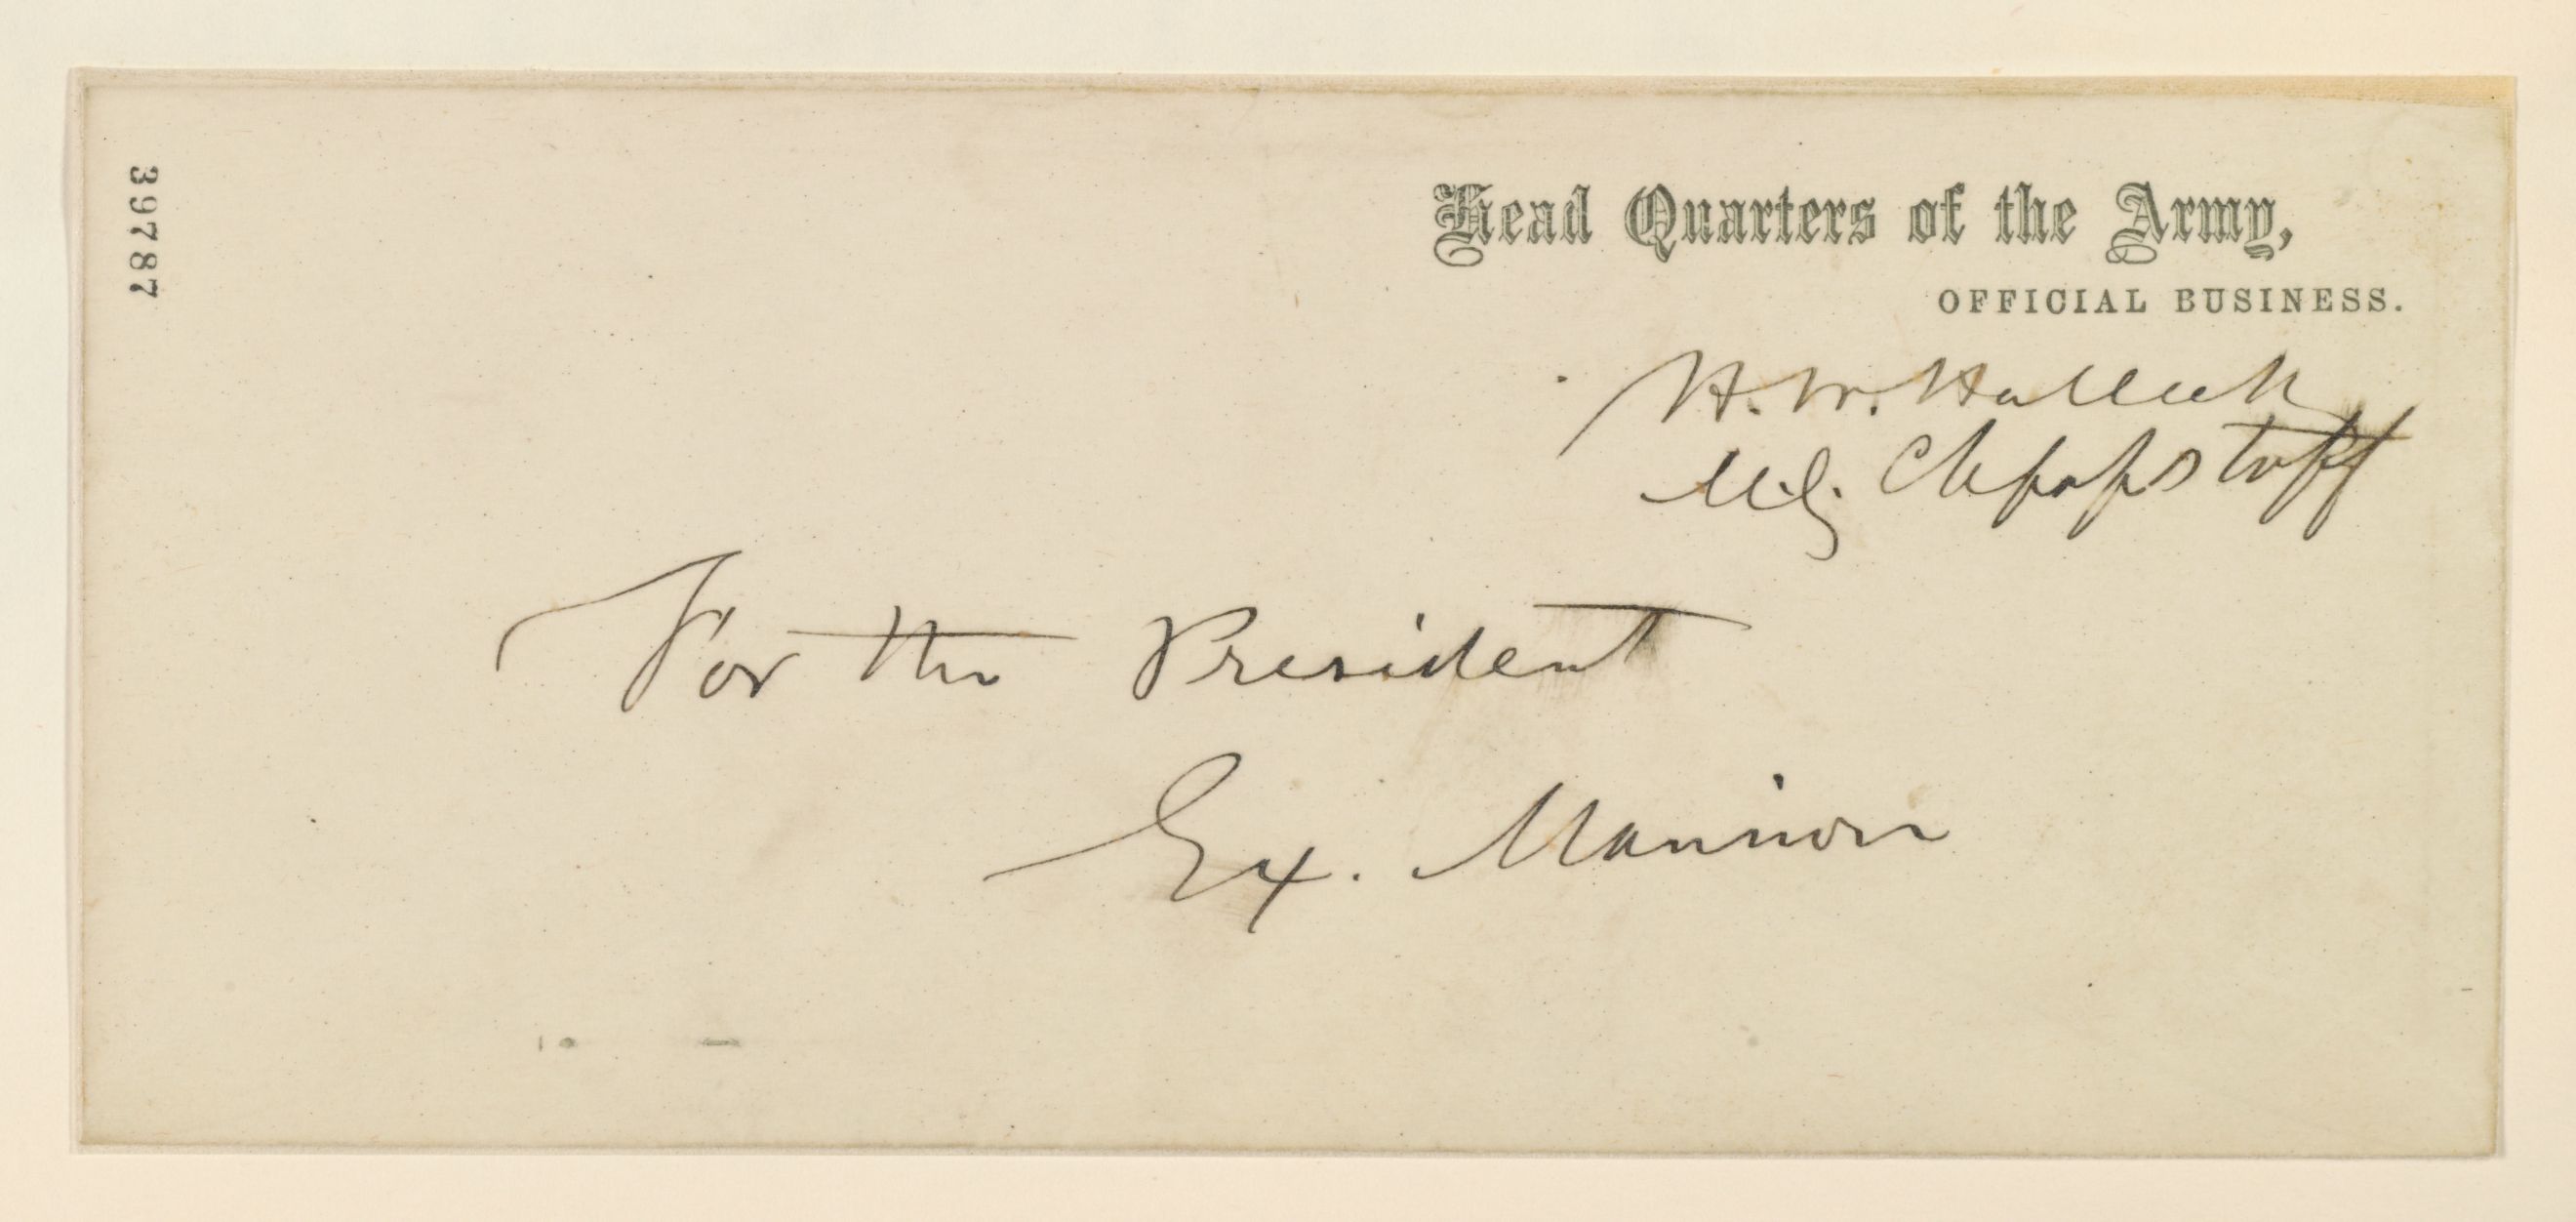 39787
Head Quarters of the Army,
OFFICIAL BUSINESS.
H. W. Halleck
M.G. Ch of Staff
For the President
Ex. Mansion